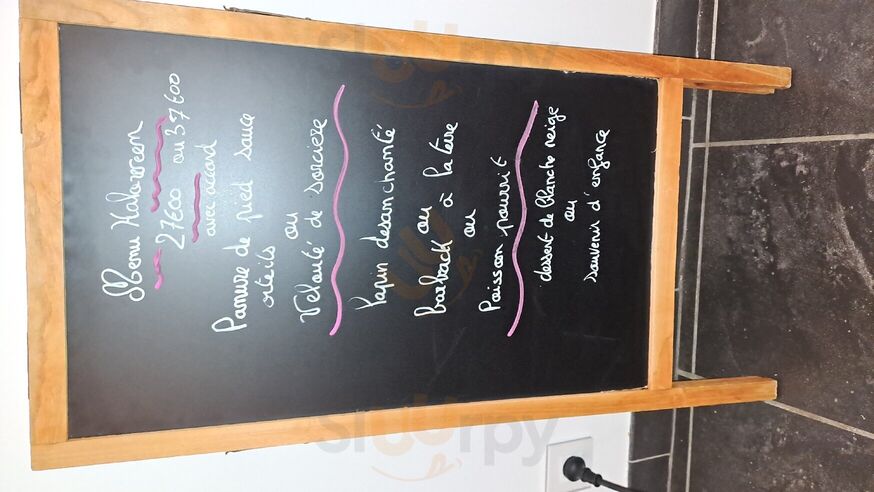 Menu Halowen
27€00 ou 37€00
avec accord
Panure de pied sauce
orteils ou
Velouté de sorcière
Papin desanchanté
ou
barback à la terre
ou
Poisson pourrit
dessert de Blanche neige
ou
souvenir d'enfance
sluurpy
sluurpy